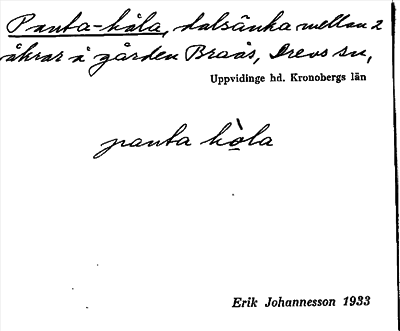 Panta-håla, dalsänka mellan 2
åkrar i gården Braås, Drevs sn,
Uppvidinge hd. Kronobergs län
panta hò̲la
Erik Johannesson 1933